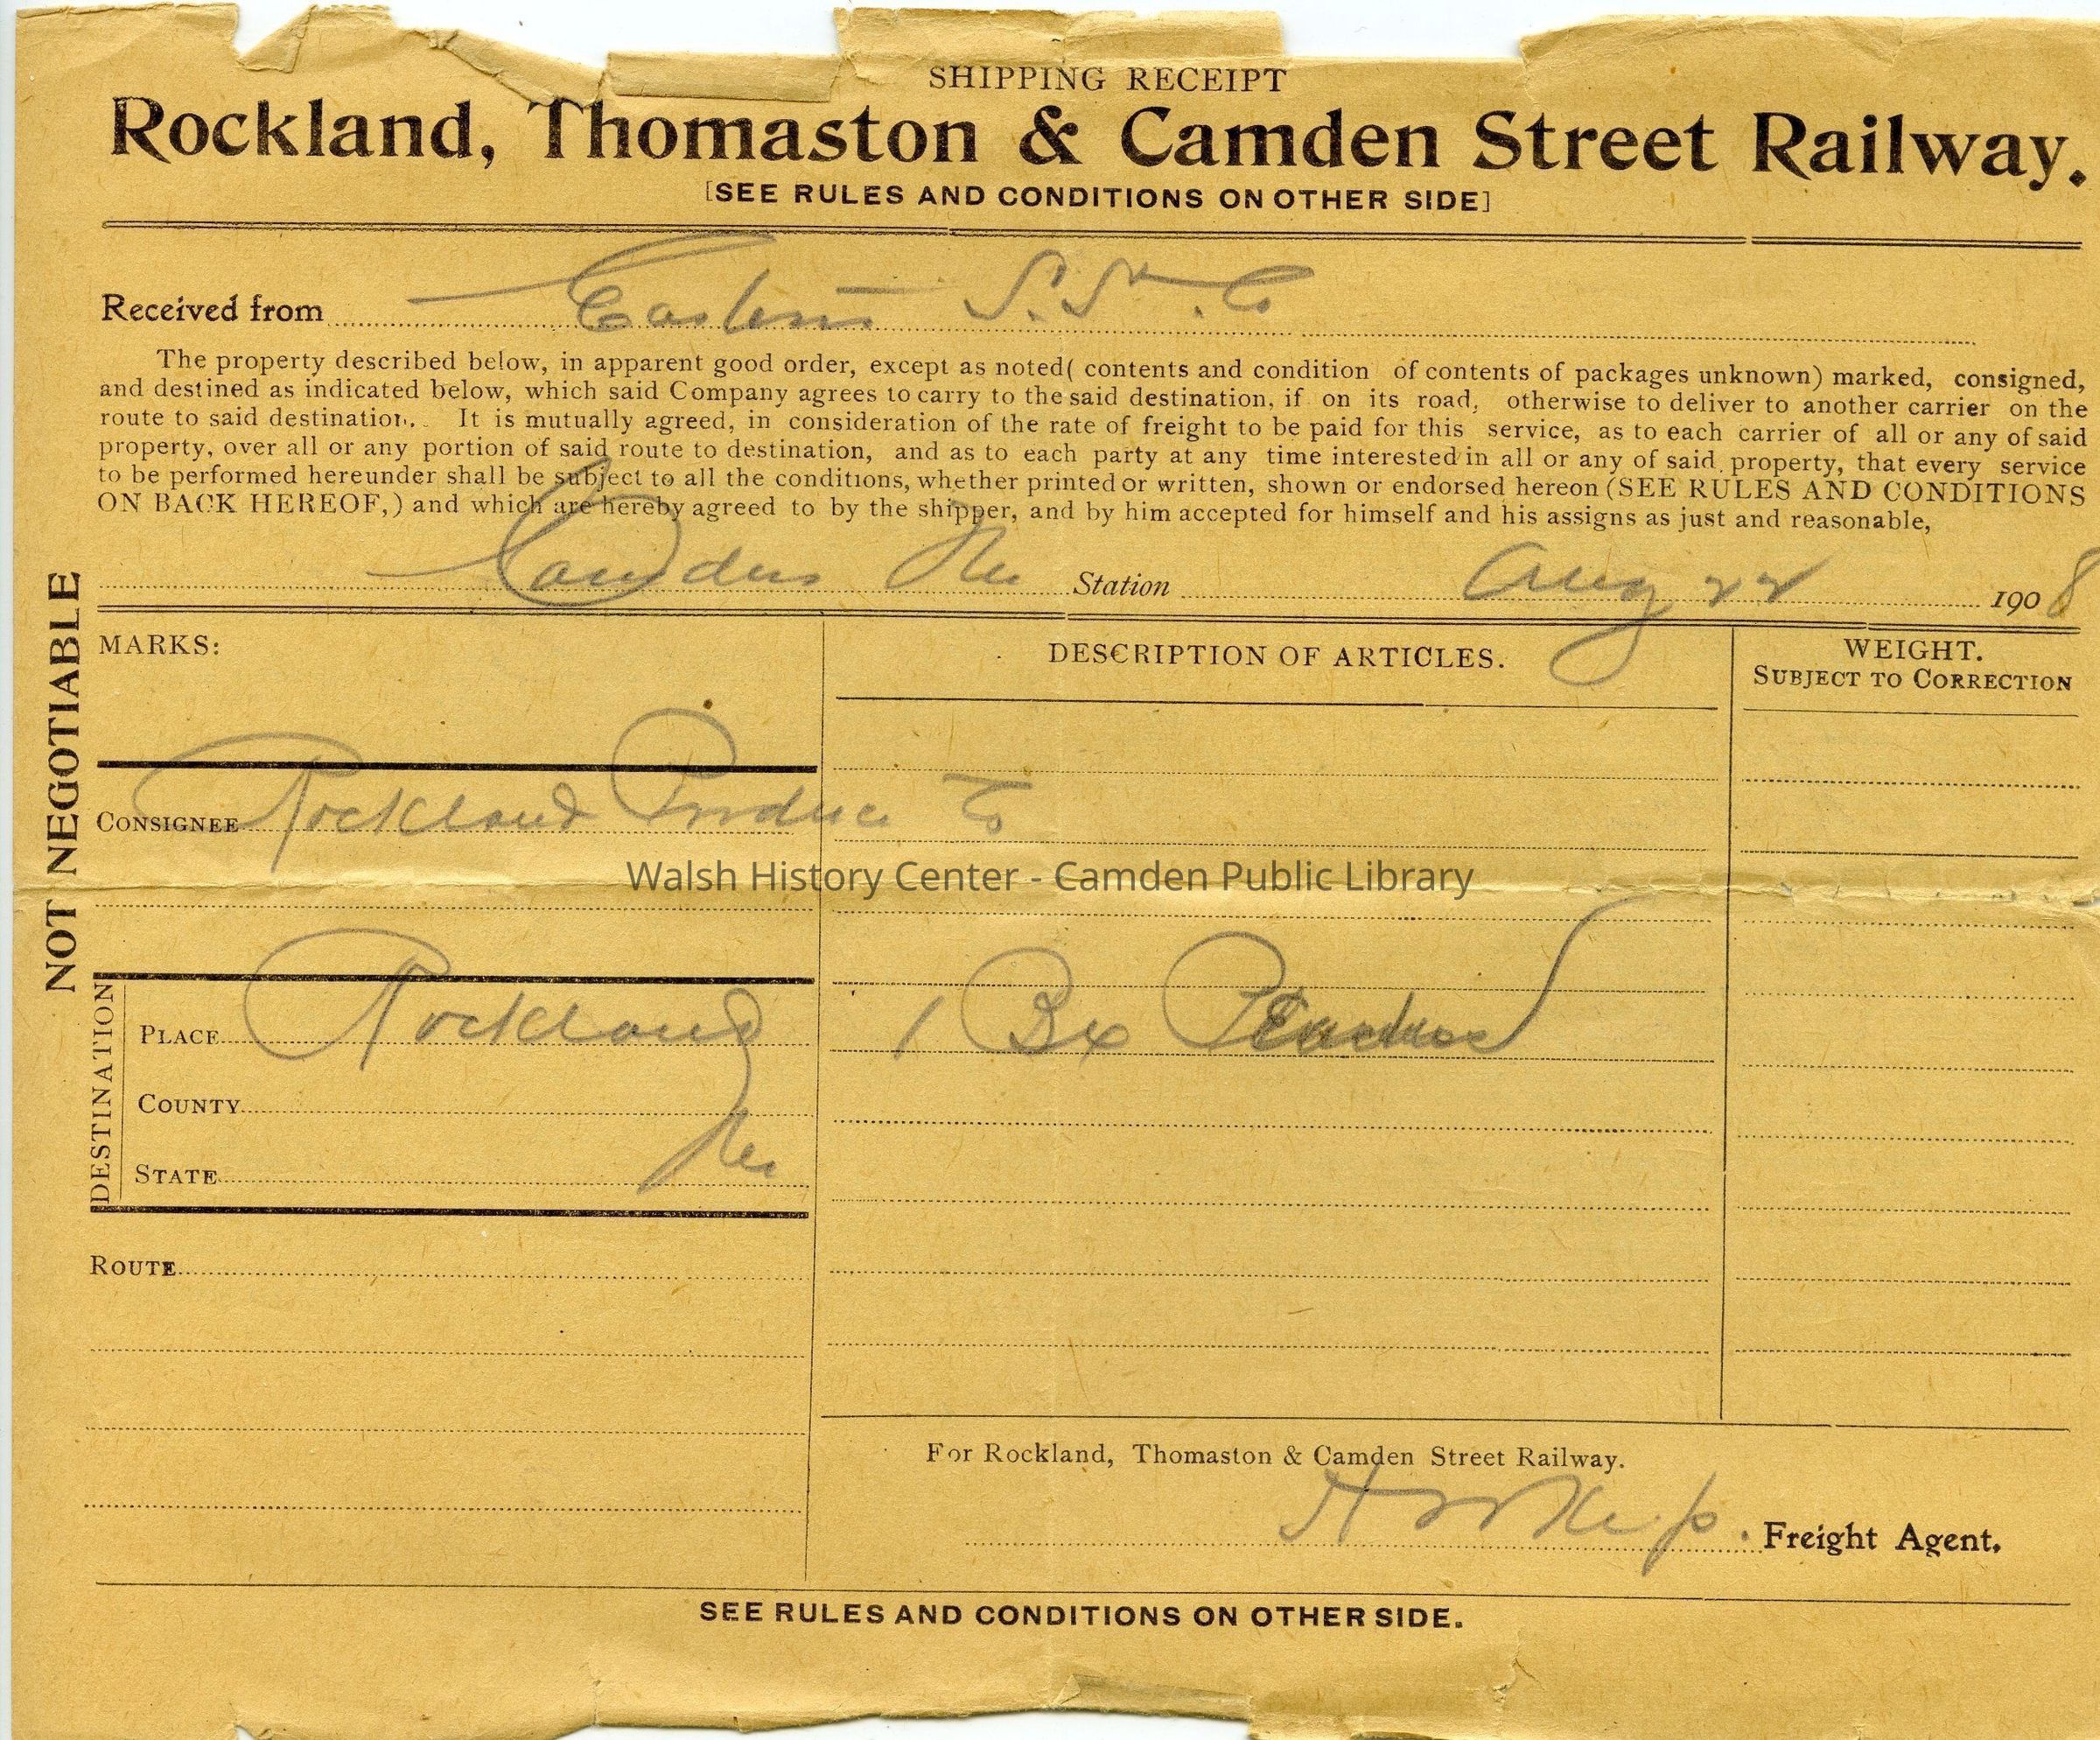 SHIPPING RECEIPT
Rockland, Thomaston & Camden Street Railway.
[SEE RULES AND CONDITIONS ON OTHER SIDE]
Received from Eastern S.S. Co
The property described below, in apparent good order, except as noted( contents and condition of contents of packages unknown) marked, consigned,
and destined as indicated below, which said Company agrees to carry to the said destination, if on its road, otherwise to deliver to another carrier on the
route to said destination. It is mutually agreed, in consideration of the rate of freight to be paid for this service, as to each carrier of all or any of said
property, over all or any portion of said route to destination, and as to each party at any time interested in all or any of said property, that every service
to be performed hereunder shall be subject to all the conditions, whether printed or written, shown or endorsed hereon (SEE RULES AND CONDITIONS
ON BACK HEREOF,) and which are hereby agreed to by the shipper, and by him accepted for himself and his assigns as just and reasonable,
Camden Me Station Aug 22 1908
NOT NEGOTIABLE
MARKS:
DESCRIPTION OF ARTICLES.
WEIGHT.
SUBJECT TO CORRECTION
CONSIGNEE Rockland Produce Co
Walsh History Center - Camden Public Library
DESTINATION
PLACE Rockland
1 Bx Peaches
COUNTY
STATE Me
ROUTE
For Rockland, Thomaston & Camden Street Railway.
Freight Agent.
SEE RULES AND CONDITIONS ON OTHER SIDE.